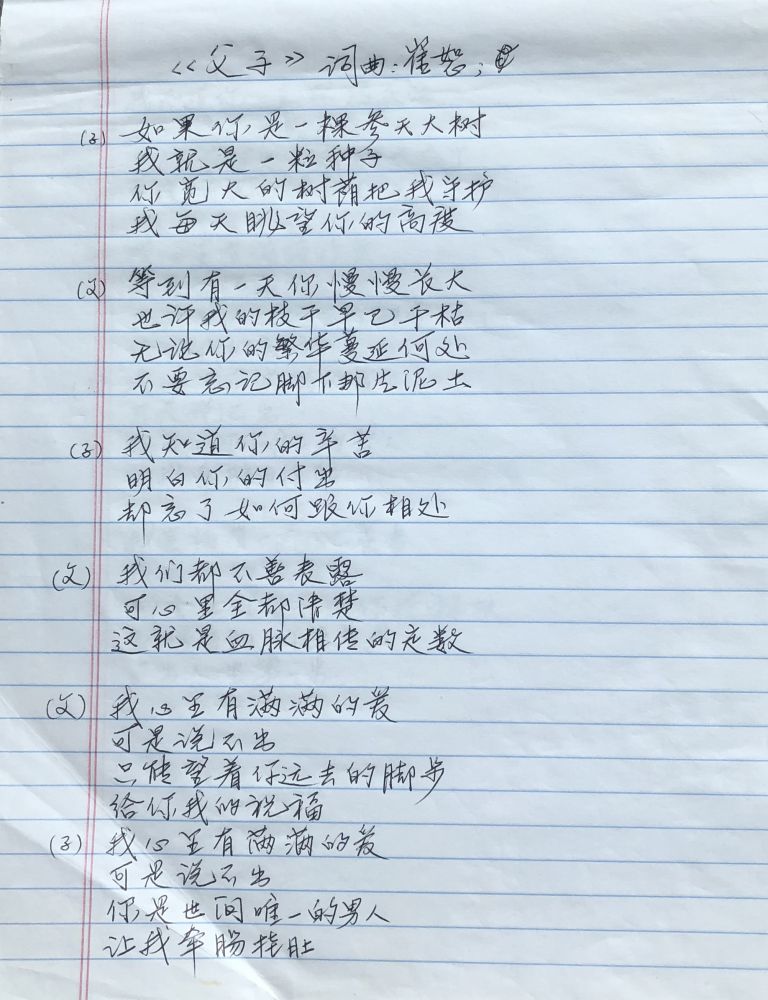 《父子》 词曲：崔恕；
(子) 如果你是一棵参天大树
我就是一粒种子
你宽大的树荫把我守护
我每天眺望你的高度
(父) 等到有一天你慢慢长大
也许我的枝干早已干枯
无论你的繁华蔓延何处
不要忘记脚下那片泥土
(子) 我知道你的辛苦
明白你的付出
却忘了如何跟你相处
(父) 我们都不善表露
可心里全都清楚
这就是血脉相传的定数
(父) 我心里有满满的爱
可是说不出
只能望着你远去的脚步
给你我的祝福
(子) 我心里有满满的爱
可是说不出
你是世间唯一的男人
让我牵肠挂肚